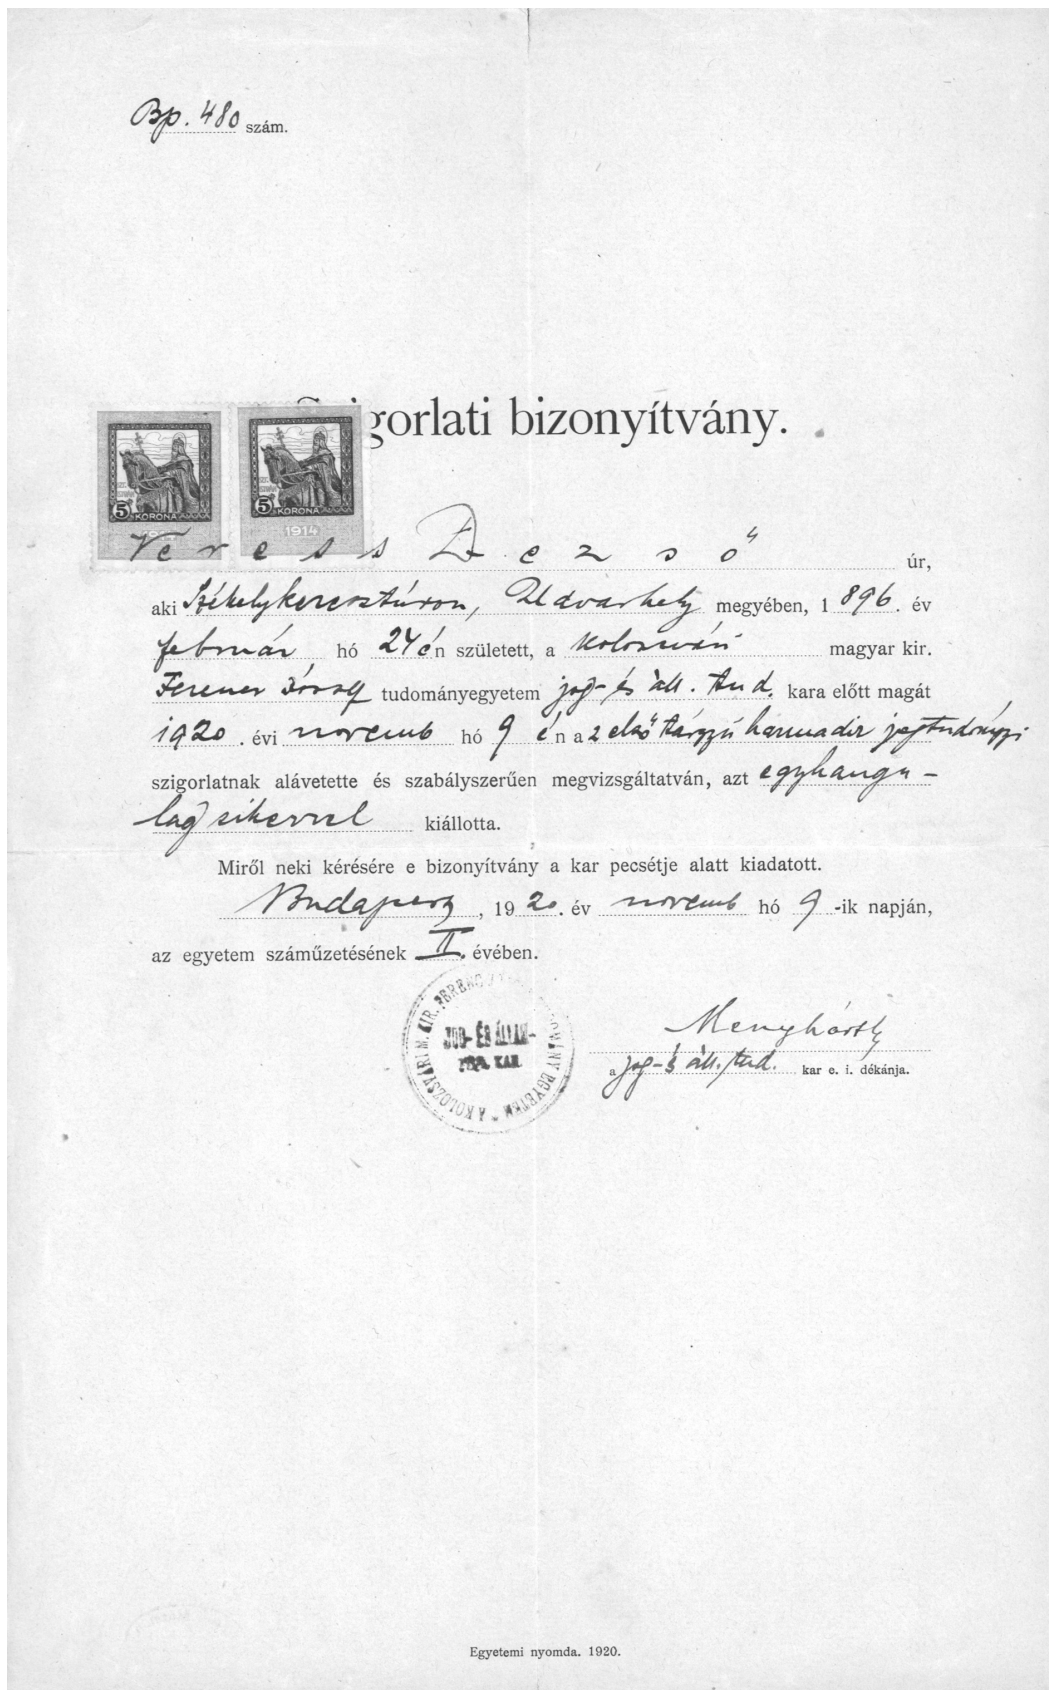 Bp. 480 szám.
Szigorlati bizonyítvány.
5 KORONA
5 KORONA
1914
Veress Dezső úr,
aki Székelykeresztúron, Udvarhely megyében, 1896. év
február hó 24 én született, a kolozsvári magyar kir.
Ferencz József tudományegyetem jog- és áll. tud. kara előtt magát
1920. évi novemb hó 9 én az első tárgyú harmadik jogtudományi
szigorlatnak alávetette és szabályszerűen megvizsgáltatván, azt egyhangu-
lag sikerrel kiállotta.
Miről neki kérésére e bizonyítvány a kar pecsétje alatt kiadatott.
Budapest, 1920. év novemb hó 9-ik napján,
az egyetem száműzetésének II. évében.
A KOLOZSVÁRI M. KIR. FERENC
JOG- ÉS ÁLLAM-
TUD. KAR
Menyhárth
a jog- s áll. tud. kar e. i. dékánja.
Egyetemi nyomda. 1920.